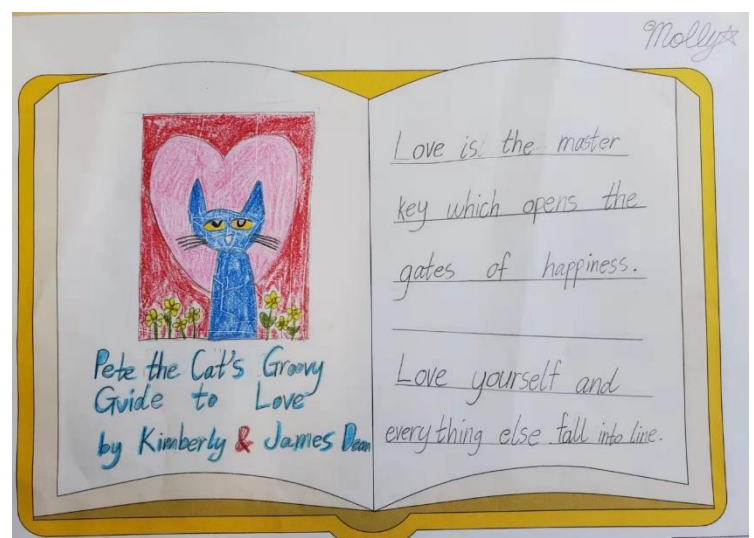 Molly☆
Pete the Cat's Groovy
Guide to Love
by Kimberly & James Dean
Love is the master
key which opens the
gates of happiness.
Love yourself and
everything else fall into line.